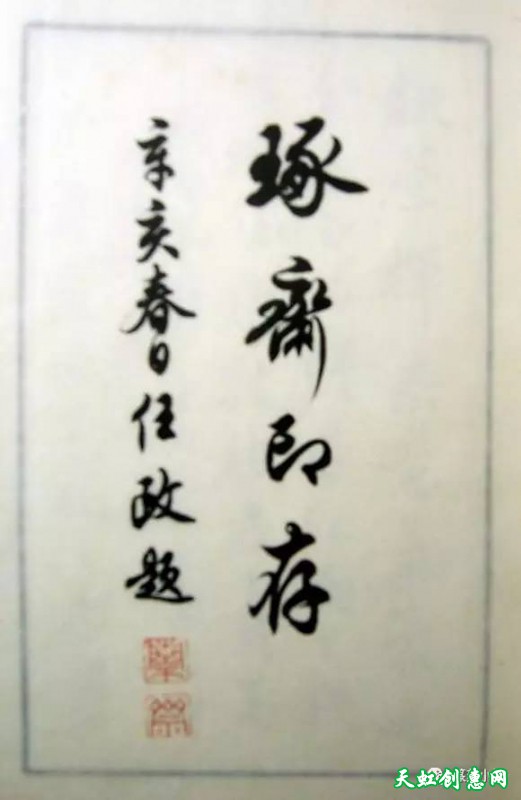 琢斋印存
辛亥春日任政题
天虹创惠网